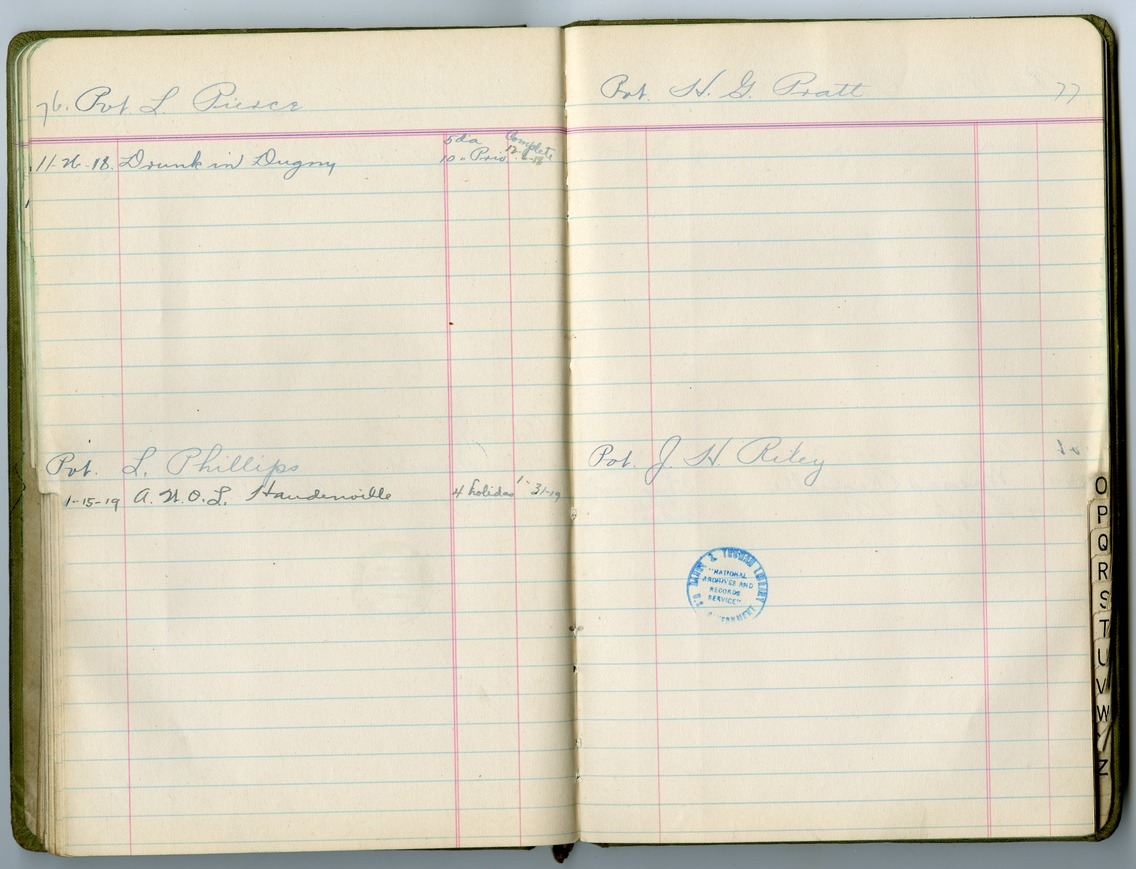 76. Pvt. L. Pierce
11-26-18. Drunk in Dugny 5 da Complete
10 " Pris. 12-6-18
Pvt. L. Phillips
1-15-19 A.W.O.L. Haudenville 4 holidas 1-31-19
Pvt. H. G. Pratt 77
Pvt. J. H. Riley
HARRY S. TRUMAN LIBRARY
"NATIONAL
ARCHIVES AND
RECORDS
SERVICE"
U.S. GOVERNMENT
O
P
Q
R
S
T
U
V
W
Y
Z